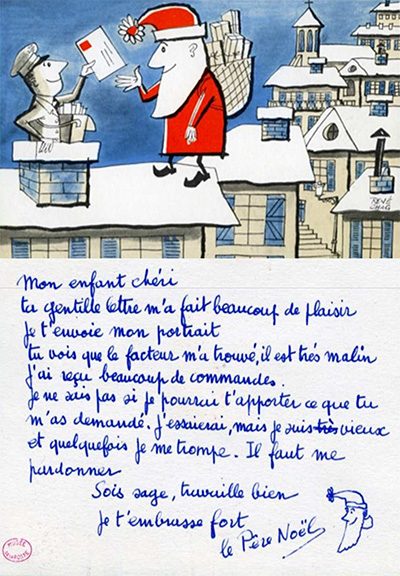 RENÉ
CHAG
Mon enfant chéri
ta gentille lettre m'a fait beaucoup de plaisir
Je t'envoie mon portrait
tu vois que le facteur m'a trouvé, il est très malin
J'ai reçu beaucoup de commandes.
Je ne sais pas si je pourrai t'apporter ce que tu
m'as demandé. J'essaierai, mais je suis très vieux
et quelquefois je me trompe. Il faut me
pardonner
Sois sage, travaille bien
Je t'embrasse fort
le Père Noël
MUSÉE